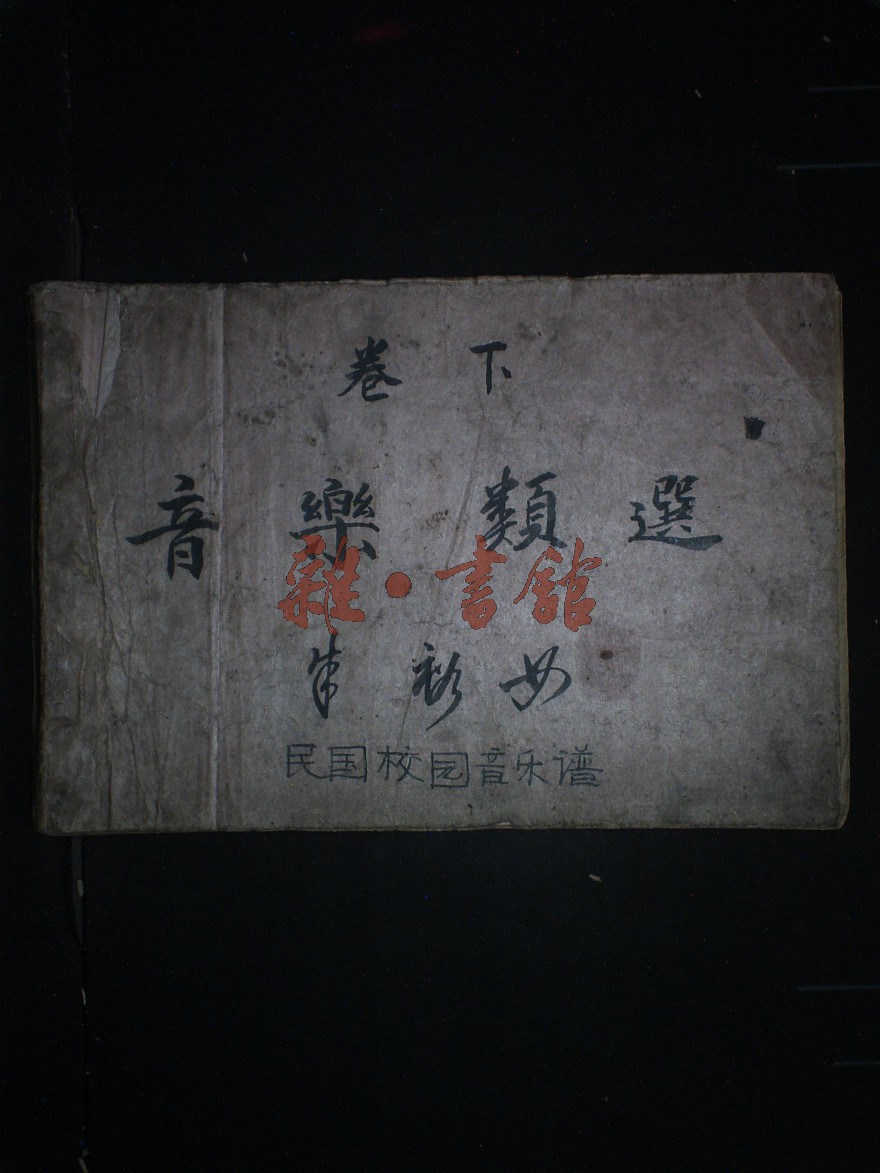 卷下
音樂類選
雜·書館
朱
民国校园音乐谱